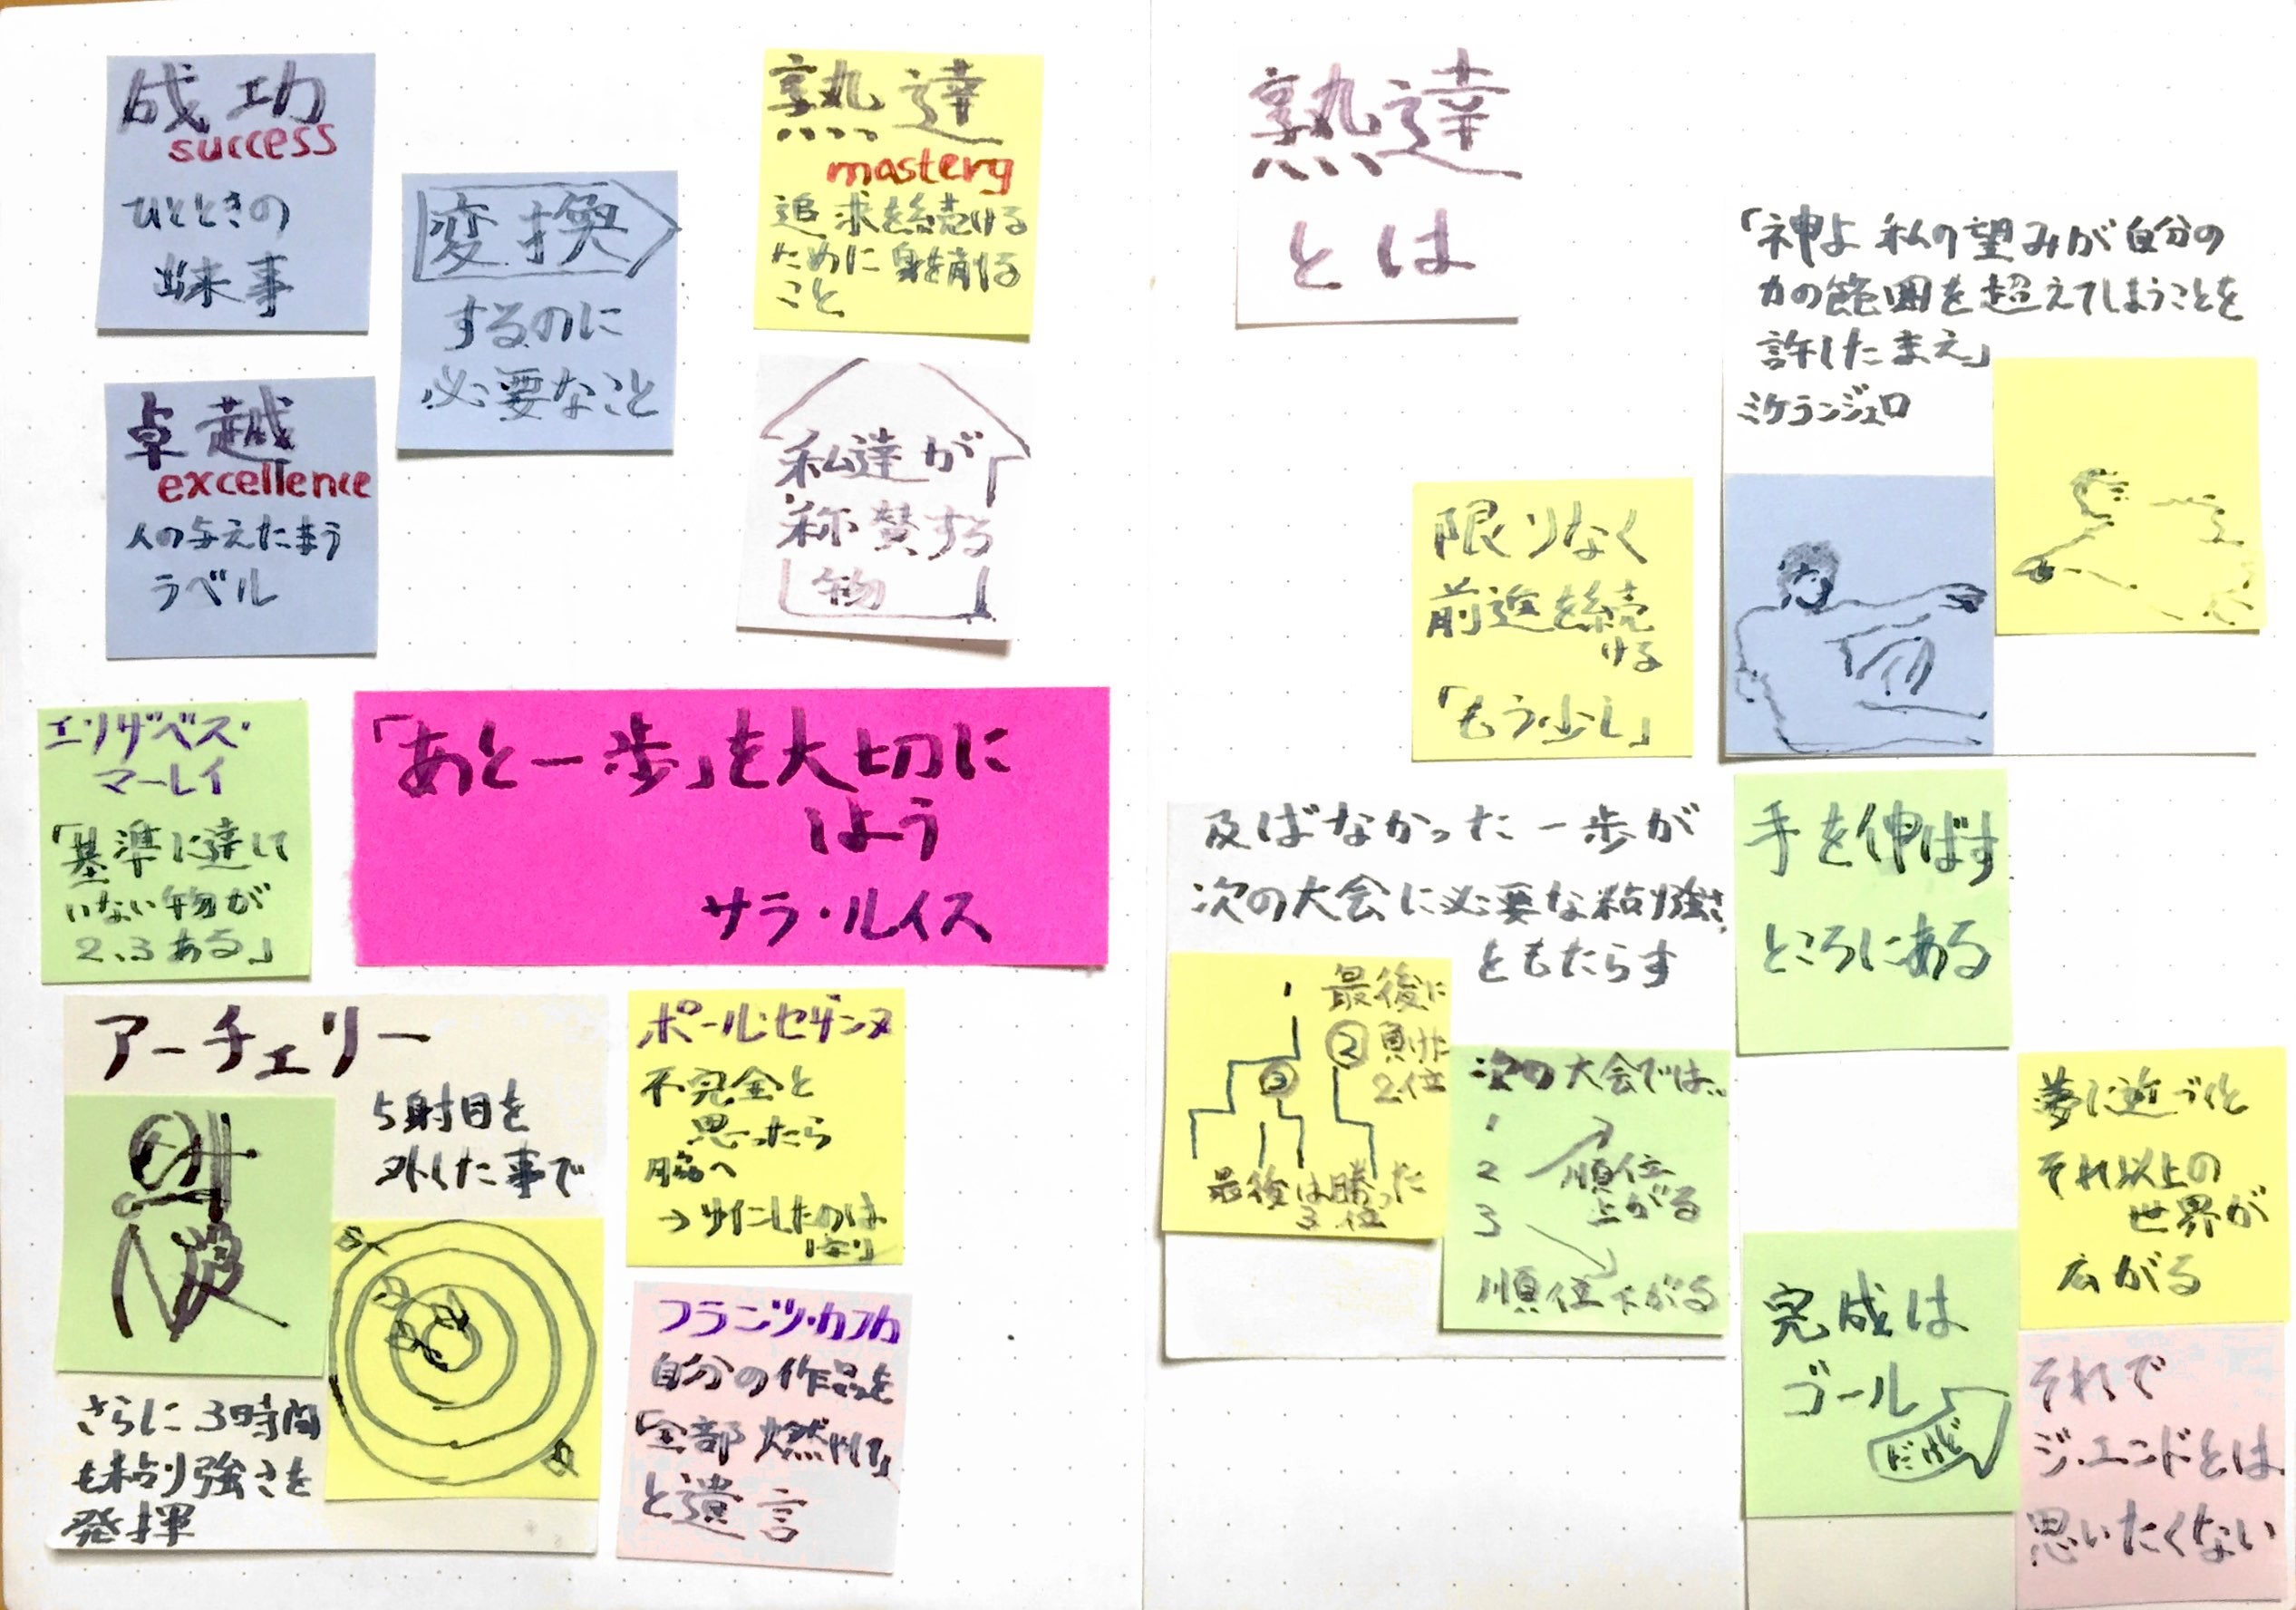 成功
success
ひとときの
出来事
変換
するのに
必要なこと
熟達
mastery
追求を続ける
ために身を捧げる
こと
卓越
excellence
人の与えたまう
ラベル
私達が
称賛する
物
エリザベス・
マーレイ
「基準に達して
いない物が
2、3ある」
「あと一歩」を大切に
しよう
サラ・ルイス
アーチェリー
5射目を
外した事で
さらに3時間
も粘り強さを
発揮
ポール・セザンヌ
不完全と
思ったら
脇へ
→サインしたのは
フランツ・カフカ
自分の作品を
「全部燃やせ」
と遺言
熟達
とは
「神よ私の望みが自分の
力の範囲を超えてしまうことを
許したまえ」
ミケランジェロ
限りなく
前進を続
ける
「もう少し」
及ばなかった一歩が
次の大会に必要な粘り強さ
をもたらす
1 最後に
② 負けた
2位
③
最後は勝った
3位
次の大会では..
1
2 順位
上がる
3
順位下がる
手を伸ばす
ところにある
夢に近づくと
それ以上の
世界が
広がる
完成は
ゴール
だけど
それで
ジ・エンドとは
思いたくない